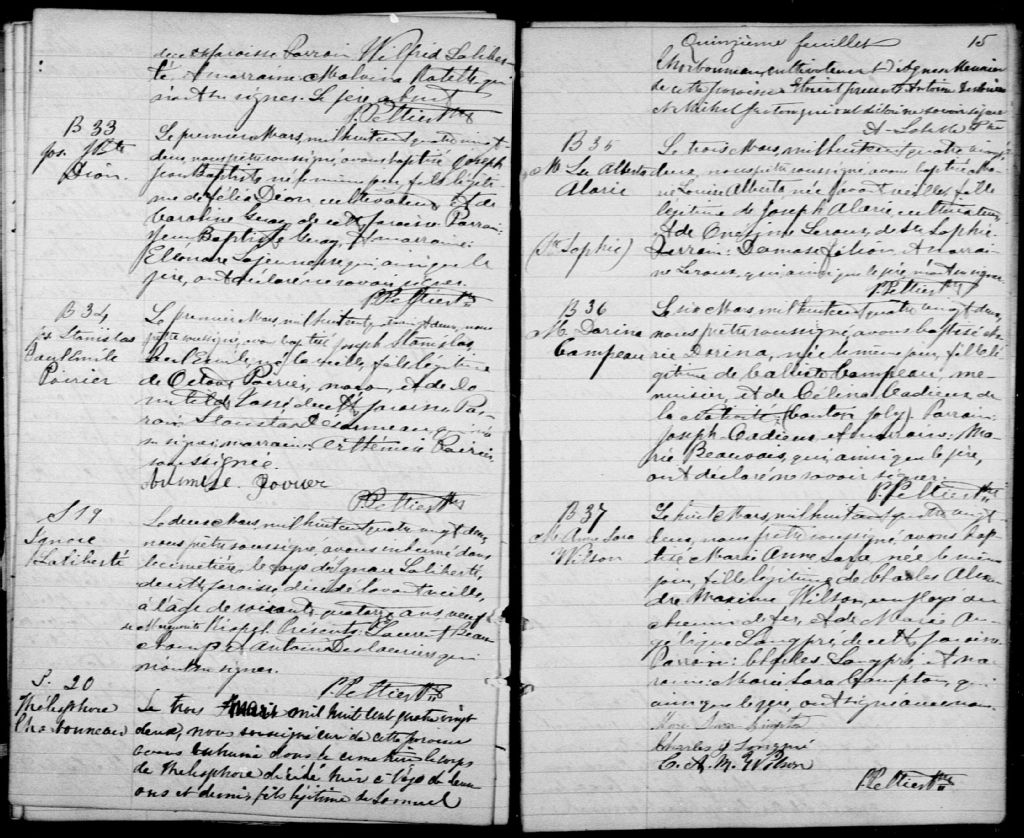 de cette paroisse Parrain Wilfrid Laliber-
té, & marraine: Malvina Ratelle qui
n'ont su signer. Le père absent
P. Peltier Ptre
B 33
Jos. Jn Bte
Dion.
Le premier Mars, mil huit cent quatre vingt-
deux, nous prêtre soussigné, avons baptisé Joseph
Jean Baptiste, né le même jour, fils légiti
me de Félix Dion, cultivateur, et de
Caroline Guay, de cette paroisse Parrain:
Jean Baptiste Guay, & marraine:
Eléonore Lajeunesse qui, ainsi que le
père, ont déclaré ne savoir signer.
P. Peltier Ptre
B 34
Jos Stanislas
Paul Emile
Poirier
Le premier Mars, mil huit cent quatre vingt deux, nous
prêtre soussigné, avons baptisé Joseph Stanislas
Paul Emile, né la veille, fils légitime
de Octave Poirier, maçon, et de Do
mitilde de cette paroisse Par-
rain: qui n'a
su signer marraine: Arthémise Poirier,
soussignée.
Poirier
P. Peltier Ptre
S 19
Ignace
Laliberté
Le deux Mars, mil huit cent quatre vingt deux,
nous prêtre soussigné, avons inhumé dans
le cimetière, le corps de Ignace Laliberté,
de cette paroisse, décédé l'avant veille,
à l'âge de soixante quatorze ans veuf
de Marguerite Présents: Laurent Beau
champ & Antoine Deslauriers qui
n'ont su signer.
P. Peltier Ptre
S. 20
Thélesphore
Charbonneau
Le trois Mars mil huit cent quatre vingt
deux, nous soussigné curé de cette paroisse
avons inhumé dans le cimetière le corps
de Thélesphore décédé hier à l'âge de deux
ans et demi, fils légitime de Samuel
Quinzième feuillet
15
Charbonneau, cultivateur et d'Agnès Meunier
de cette paroisse Etoient présents Antoine
et Michel qui ont déclaré ne savoir signer
Ptre
B 35
M. Ls. Alberta
Alarie
(Ste Sophie)
Le trois Mars, mil huit cent quatre vingt
deux, nous prêtre soussigné, avons baptisé Ma-
rie Louise Alberta, née l'avant veille, fille
légitime de Joseph Alarie, cultivateur,
& de Onésyme Leroux, de Ste Sophie.
Parrain: Damase Filion, & marrai
ne Leroux, qui, ainsi que le père, n'ont su signer
P. Peltier Ptre
B 36
M. Dorina
Campeau
Le six Mars, mil huit cent quatre vingt deux,
nous prêtre soussigné, avons baptisé Ma
rie Dorina, née le même jour, fille lé
gitime de Calixte Campeau, me-
nuisier, et de Célina Cadieux de
la (Canton Joly) Parrain:
Joseph Cadieux, & marraine: Ma
rie Beauvais, qui, ainsi que le père,
ont déclaré ne savoir signer.
P. Peltier Ptre
B 37
M Anne Sara
Wilson
Le huit Mars, mil huit cent quatre vingt
deux, nous prêtre soussigné, avons bap-
tisé Marie Anne Sara, née le même
jour, fille légitime de Charles Alexan
dre Maxime Wilson, employé au
chemin de fer, & de Marie An
gélique Longpré de cette paroisse
Parrain: Charles Longpré, & mar
raine: Marie Sara Compton, qui
ainsi que le père, ont signé avec nous.
Mary Sara Compton
Charles J Longpré
C. A. M. Wilson
P. Peltier Ptre